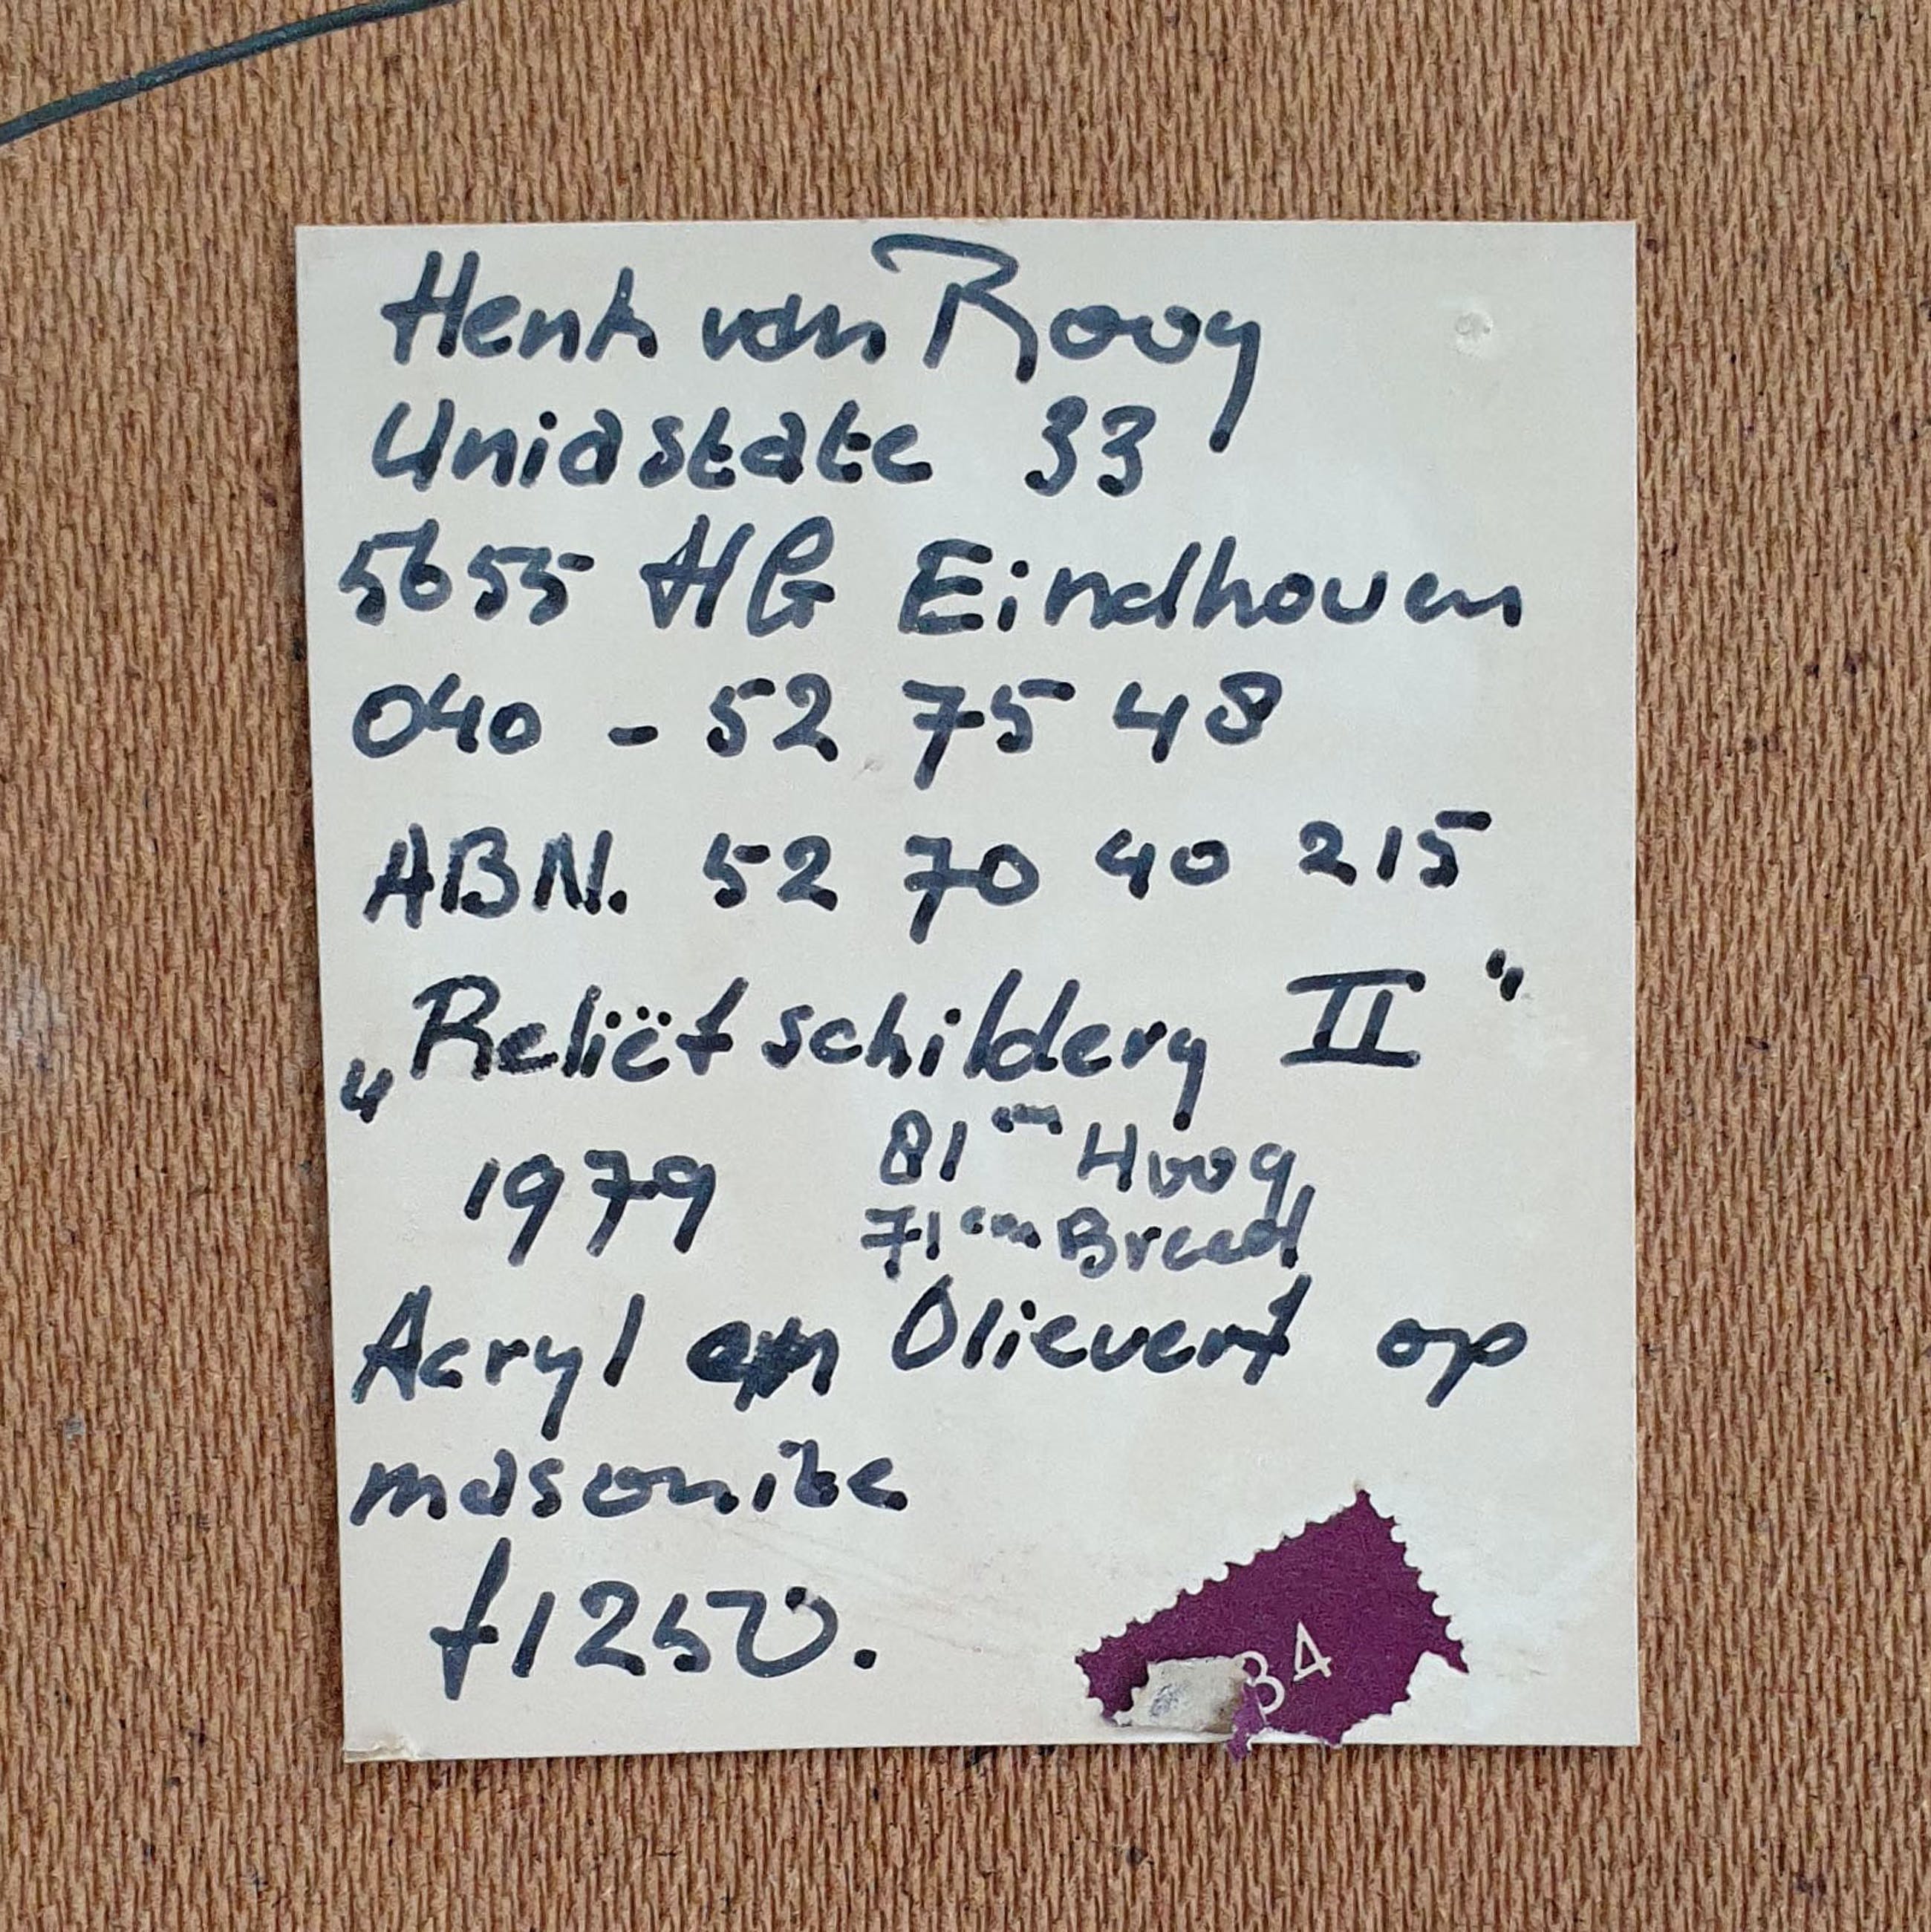 Henk van Rooy
Uniastate 33
5655 HG Eindhoven
040 - 52 75 48
ABN. 52 70 40 215
„Reliëf schildery II"
1979
81 cm Hoog
71 cm Breed
Acryl en Olieverf op
masonite
f1250.
34